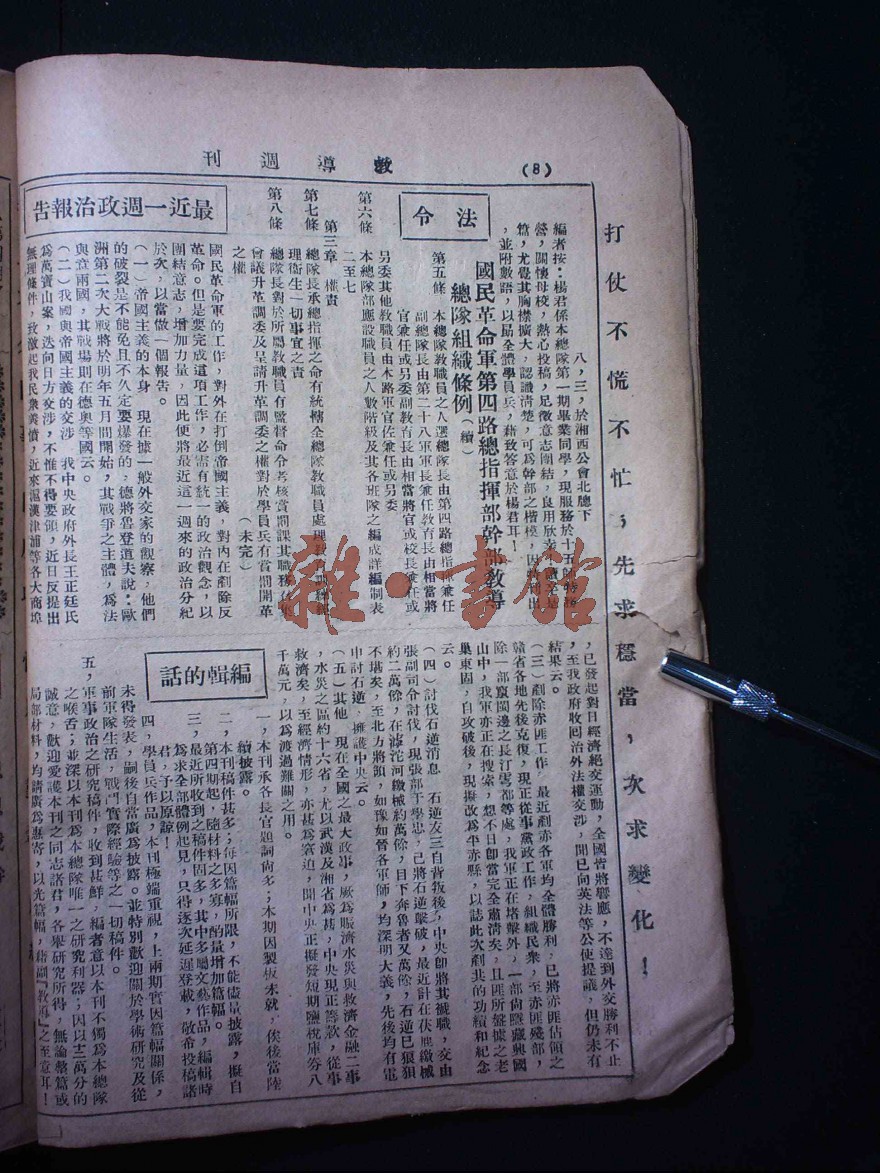 (8)
教導週刊
打仗不慌不忙，先求穩當，次求變化！
八，三，於湘西公會北廳下
編者按：楊君係本總隊第一期畢業同學，現服務於十五師特務
營，關懷母校，熱心投稿，足徵意志團結，良用欣幸，讀之是
篇，尤覺其胸襟擴大，認識清楚，可為幹部之楷模，因為刊出
，並附數語，以勗全體學員兵，藉致答意於楊君耳！
法令
國民革命軍第四路總指揮部幹部教導
總隊組織條例（續）
第五條　本總隊教職員之人選總隊長由第四路總指揮兼任
副總隊長由第二十八軍軍長兼任教育長由相當將
官兼任或另委副教育長由相當將官或校長兼任或
另委其他教職員由本路軍官佐兼任或另委
第六條　本總隊部應設職員之人數階級及其各班隊之編成詳編制表
二至七
第三章　權責
第七條　總隊長承總指揮之命有統轄全總隊教職員處理教
理衛生一切事宜之責
第八條　總隊長對於所屬教職員有監督命令考核賞罰課其職務
會議升革調委及呈請升革調委之權對於學員兵有賞罰開革
之權　（未完）
最近一週政治報告
國民革命軍的工作，對外在打倒帝國主義，對內在剷除反
革命。但是要完成這項工作，必需有統一的政治觀念，以
團結意志，增加力量，因此便將最近這一週來的政治分紀
於次，以當做一個報告。
（一）帝國主義的本身　現在據一般外交家的觀察，他們
的破裂是不能免且不久定要爆發的，德將魯登道夫說：歐
洲第二次大戰將於明年五月間開始，其戰爭之主體，為法
與意兩國，其戰場則在德奧等國云。
（二）我國與帝國主義的交涉　我中央政府外長王正廷氏
為萬寶山案，迭向日方交涉，不惟不得要領，近日反提出
無理條件，致激起我民衆義憤，近來滬漢津浦等各大商埠
，已發起對日經濟絕交運動，全國皆將響應，不達到外交勝利不止
，至我政府收回治外法權交涉，聞已向英法等公使提議，但仍未有
結果云。
（三）剷除赤匪工作　最近剿赤各軍均全體勝利，已將赤匪佔領之
贛省各地先後克復，現正從事黨政工作，組織民衆，至赤匪殘部，
除一部竄閩邊之長汀雩都等處，我軍正在堵擊外，一部尚匿藏興國
山中，我軍亦正在搜索，想不日卽當完全肅清矣，且匪所盤據之老
巢東固，自攻破後，現擬改為平赤縣，以誌此次剿共的功績和紀念
云。
（四）討伐石逆消息　石逆友三自背叛後，中央卽將其褫職，交由
張副司令討伐，現張部于學忠，已將石逆擊破，最近計在伏塵繳械
約二萬餘，在滹沱河繳械約萬餘，目下奔魯者又萬餘，石逆已狼狽
不堪矣，至北方將領，如豫如晉各軍師，均深明大義，先後均有電
申討石逆，擁護中央云。
（五）其他　現在全國之最大政事，厥為賑濟水災與救濟金融二事
，水災之區約十六省，尤以武漢及湘省為甚，中央現正籌款，從事
救濟矣，至經濟情形，亦甚為窘迫，聞中央正擬發短期鹽稅庫劵八
千萬元，以為渡過難關之用。
編輯的話
一，本刊承各長官題詞尚多，本期因製板未就，俟後當陸
續披露。
二，本刊稿件甚多，每因篇幅所限，不能儘量披露，擬自
第四期起，隨材料之多寡，酌量增加篇幅。
三，最近所收到之稿件固多，其中多屬文藝作品，編輯時
為求全部體例起見，只得逐次延遲登載，敬希投稿諸
君，予以原諒！
四，學員兵作品，本刊極端重視，上兩期實因篇幅關係，
未得發表，嗣後自當廣為披露。並特別歡迎關於學術研究及從
前軍隊生活，戰鬥實際經驗等之一切稿件。
五，軍事政治之研究稿件，收到甚鮮，編者意以本刊不獨為本總隊
之喉舌；並深以本刊為本總隊唯一之研究利器；因以十二萬分的
誠意，歡迎愛護本刊之同志諸君，各舉研究所得，無論整篇或
局部材料，均請廣為惠寄，以光篇幅，藉副『教導』之至意耳！
雜·書館